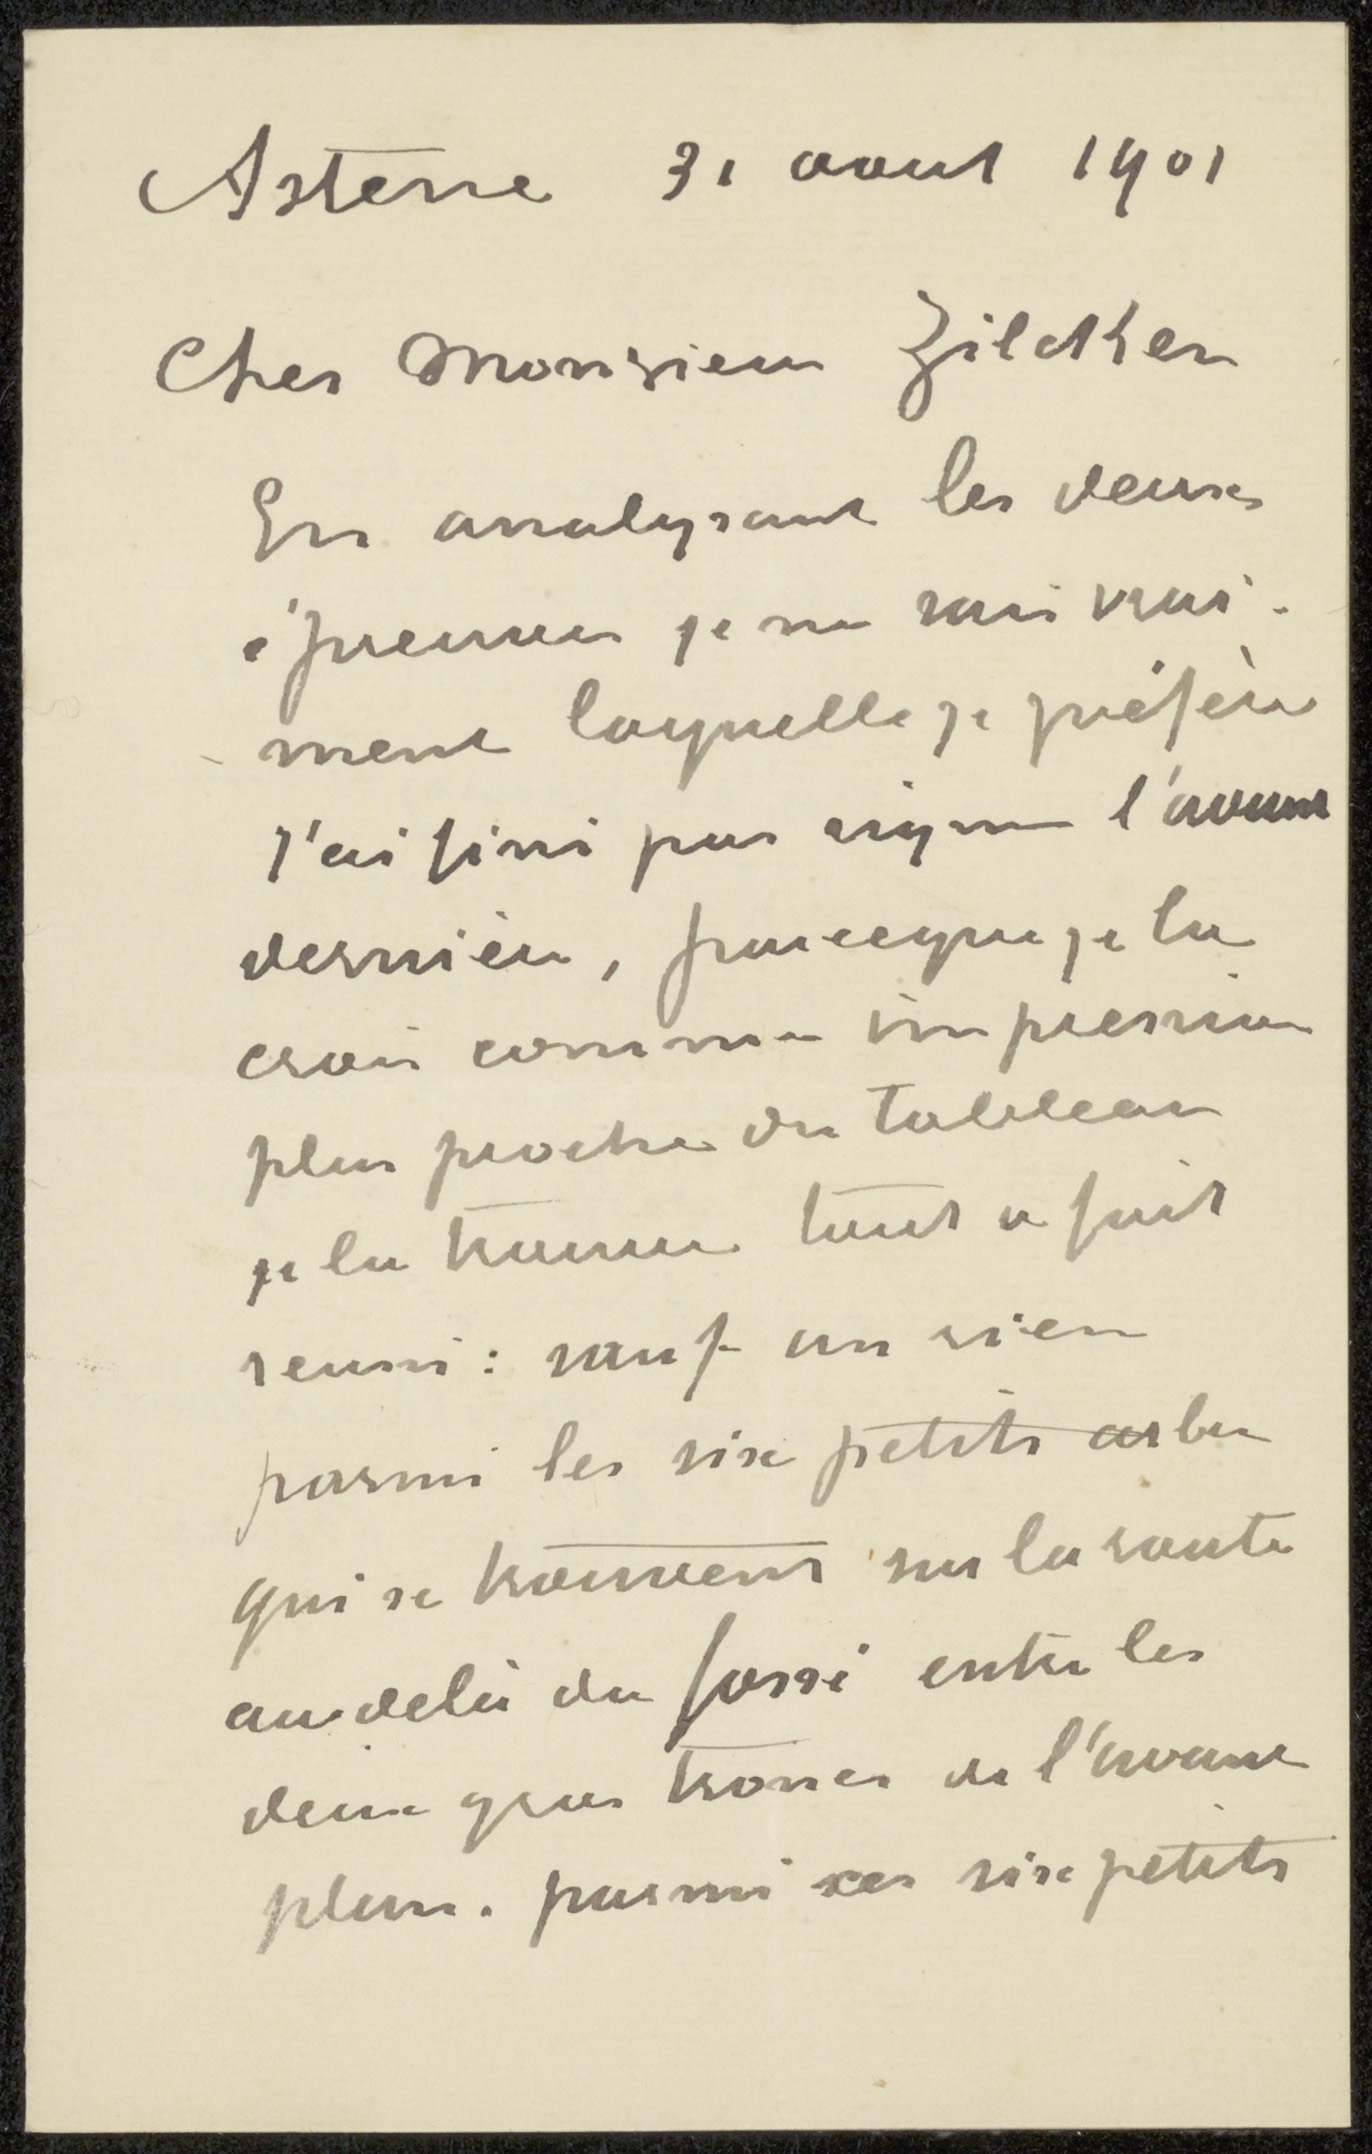 Astene 31 aout 1901
Cher Monsieur Zilcken
En analysant les deux
épreuves je ne sais vrai-
ment laquelle je préfère
j'ai fini par signer l'avant
dernière, parceque je la
crois comme impression
plus proche du tableau
je la trouve tout a fait
reussi: sauf un rien
parmi les six petits arbres
qui se trouvent sur la route
au delà du fossé entre les
deux gros troncs de l'avant
plan. parmi ces six petits